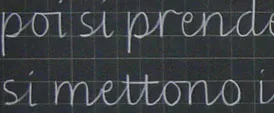 poi si prende
si mettono i